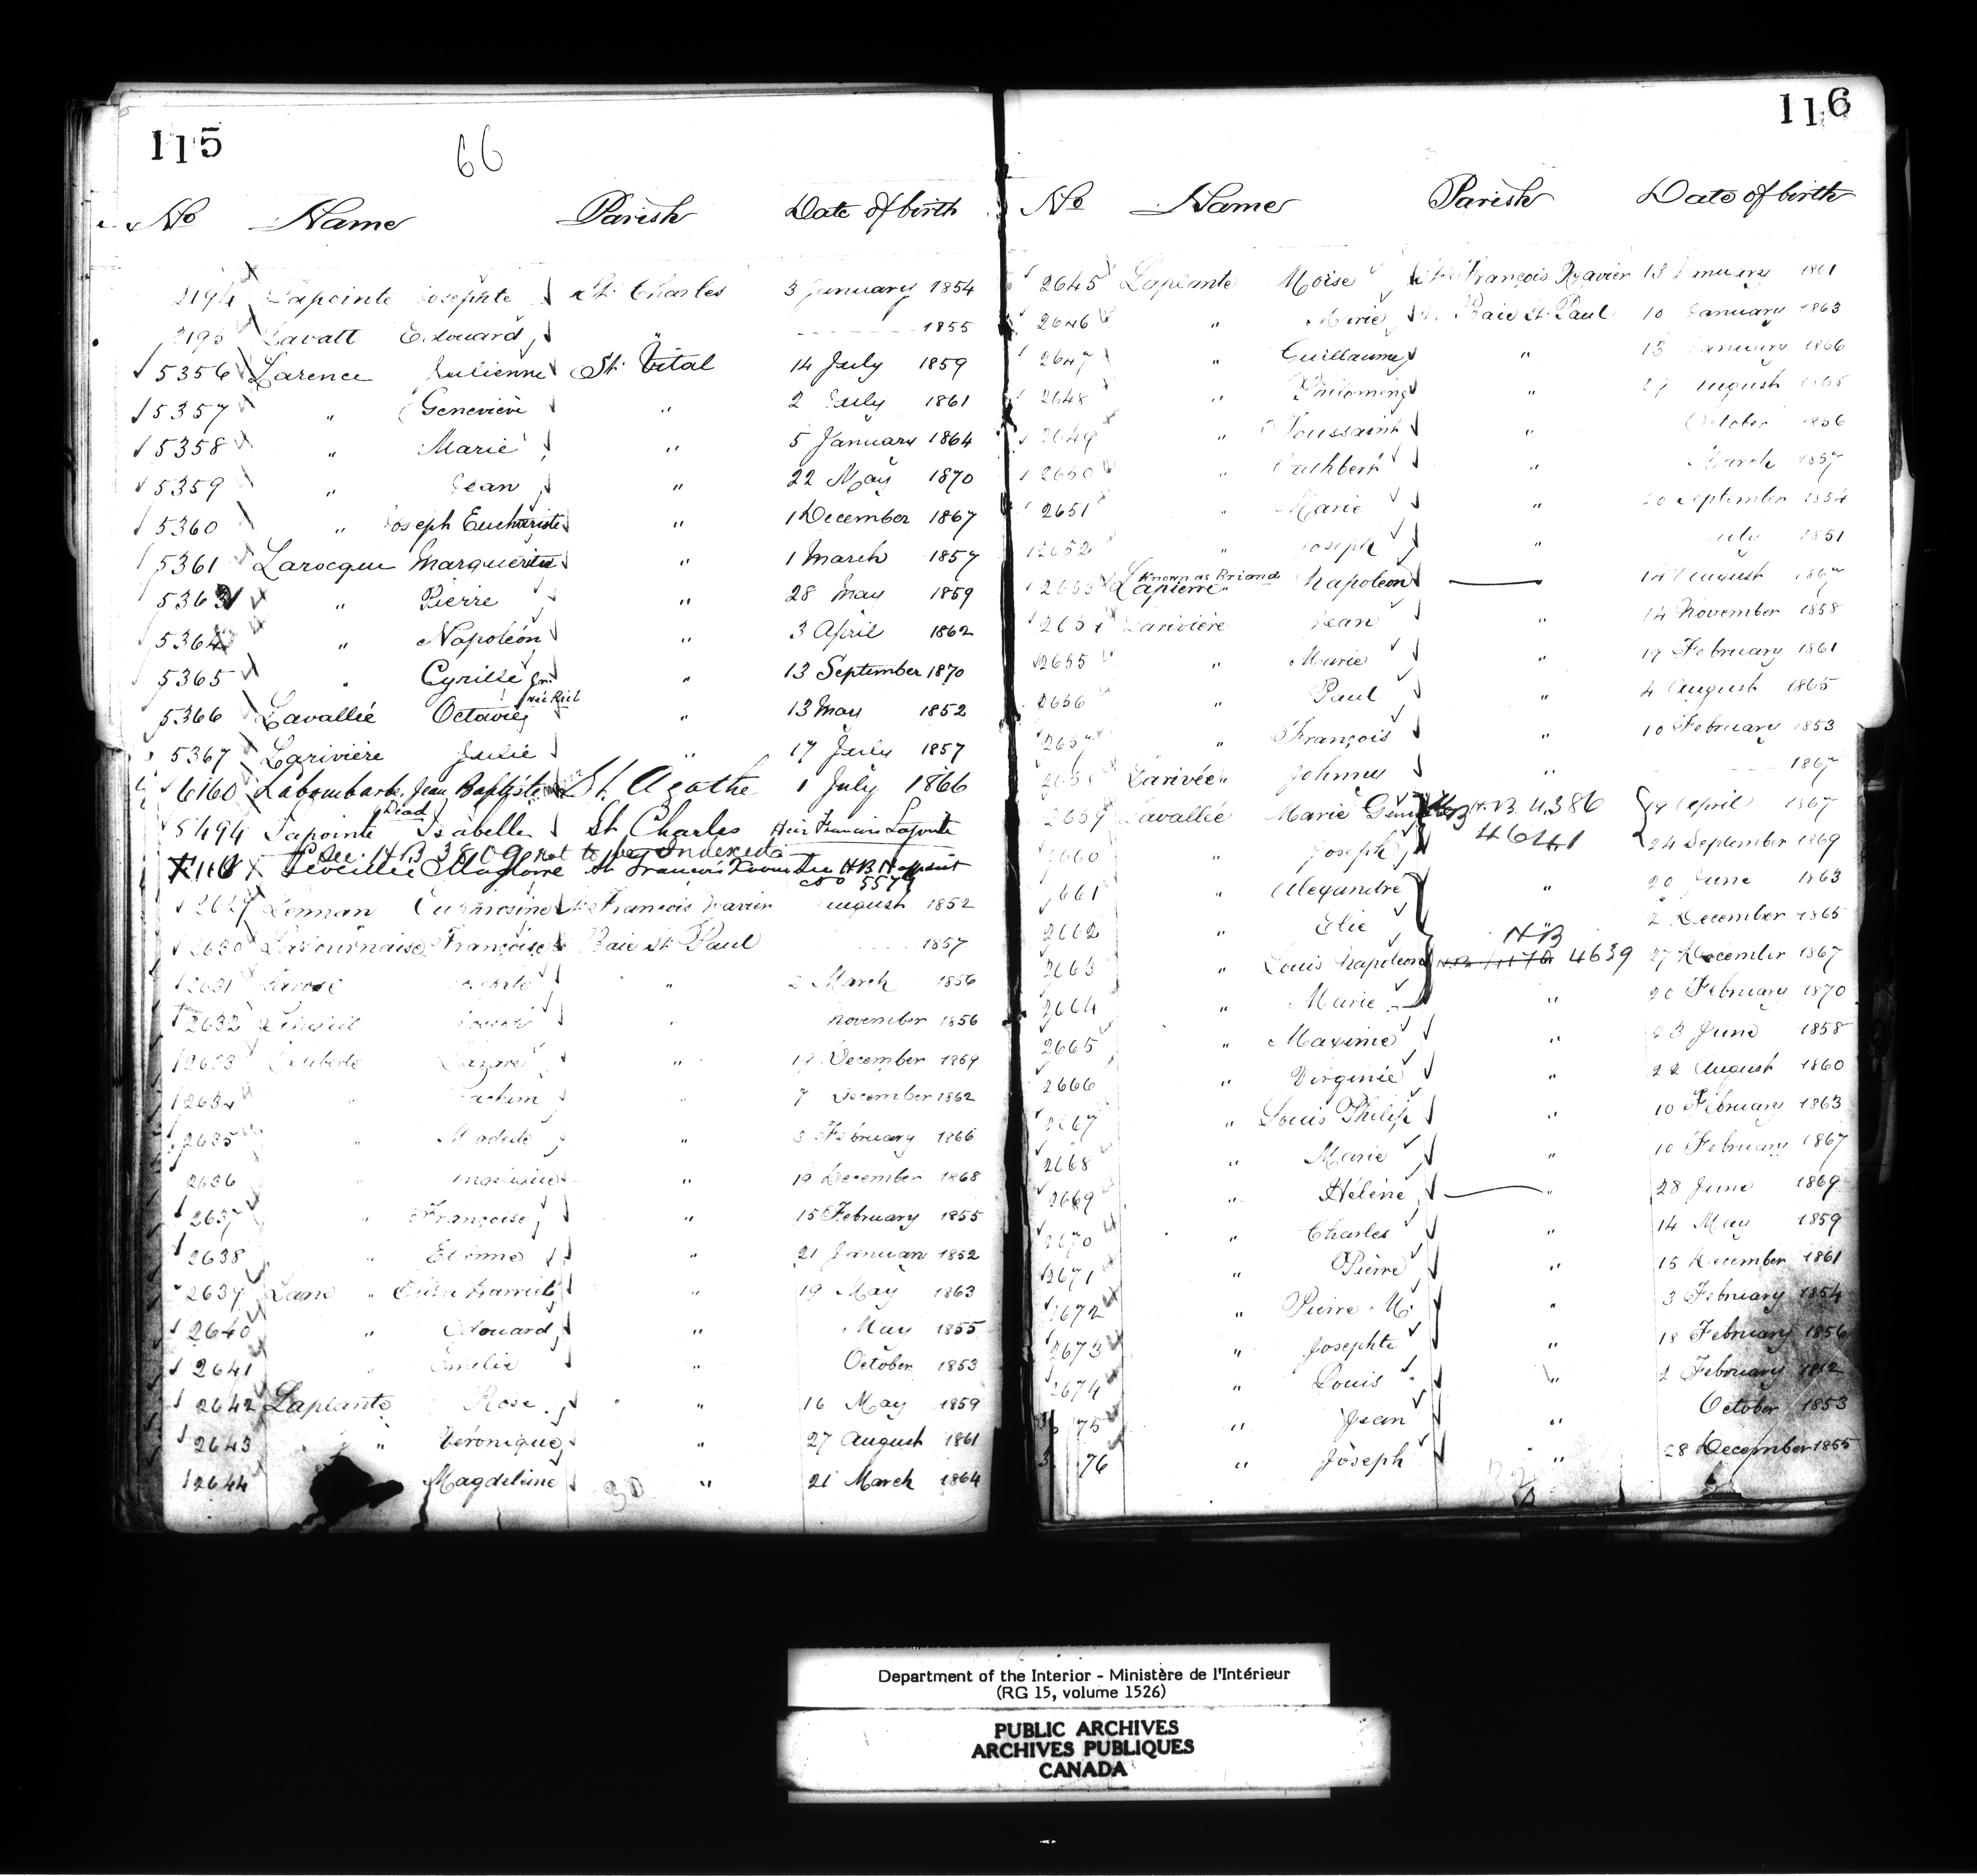 115
66
No Name Parish Date of birth
2194 Lapointe Josephte St. Charles 3 January 1854
2195 Lavatt Edouard " 1855
5356 Larence Julienne St. Vital 14 July 1859
5357 " Geneviève " 2 July 1861
5358 " Marie " 5 January 1864
5359 " Jean " 22 May 1870
5360 " Joseph Euchariste " 1 December 1867
5361 Larocque Marguerite " 1 March 1857
5363 " Pierre " 28 May 1859
5364 " Napoléon " 3 April 1862
5365 " Cyrille Jr. " 13 September 1870
5366 Lavallée Octavie née Riel " 13 May 1852
5367 Larivière Julie " 17 July 1857
6160 Labombarde Jean Baptiste St. Agathe 1 July 1866
5494 Lapointe (Dead) Isabelle St Charles Heir Francois Lapointe
See H.B 3809 not to be Indexed
Léveillée Magloire St. François Xavier See H.B
No 5579
2629 Lennan St. François Xavier August 1852
2630 Lafournaise Françoise Baie St. Paul 1857
2631 Larose " 2 March 1856
2632 " November 1856
2633 Laliberté Lazare " 19 December 1869
2634 " " 7 December 1862
2635 " " 3 February 1866
2636 " Angelique " 19 December 1868
2637 " Françoise " 15 February 1855
2638 " Etienne " 21 January 1852
2639 Lane " Eliza Harriet " 19 May 1863
2640 " Edouard " May 1855
2641 " Emilie " October 1853
2642 Laplante Rose " 16 May 1859
2643 " Véronique " 27 August 1861
2644 Magdeleine " 21 March 1864
30
116
No Name Parish Date of birth
2645 Laplante Moïse St. François Xavier 13 January 1861
2646 " Marie Baie St. Paul 10 January 1863
2647 " Guillaume " 15 January 1866
2648 " Philomène " August 1865
2649 " Toussaint " October 1856
2650 " Cuthbert " March 1857
2651 " Marie " 20 September 1854
2652 " Joseph " July 1851
2653 Lapierre Known as Briand Napoleon " August
2654 Larivière Jean " 14 November 1858
2655 " Marie " 19 February 1861
2656 " Paul " 4 August 1865
2657 " François " 10 February 1853
2658 Larivée Johnny " 1867
2659 Lavallée Marie H.B. 4386 April 1867
2660 " Joseph 4641 24 September 1869
2661 " Alexandre " 20 June 1863
2662 " Elie 2 December 1865
2663 " Louis Napoleon H.B 4639 27 December 1867
2664 " Marie " 20 February 1870
2665 " Maxime " 23 June 1858
2666 " Virginie " 22 August 1860
2667 " Louis Philip " 10 February 1863
2668 " Marie " 10 February 1867
2669 " Hélène " 28 June 1869
2670 " Charles " 14 May 1859
2671 " Pierre " 15 December 1861
2672 " Pierre M. " 3 February 1854
2673 " Josephte " 18 February 1856
2674 " Louis " 2 February
75 " Jean " October 1853
76 " Joseph " 28 December 1855
Department of the Interior - Ministère de l'Intérieur
(RG 15, volume 1526)
PUBLIC ARCHIVES
ARCHIVES PUBLIQUES
CANADA